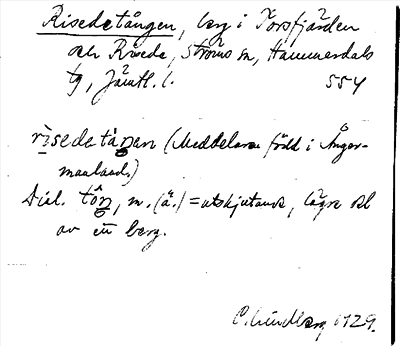 Risedetången, berg i Torsfjärden
och Risede, Ströms sn, Hammerdals
tg, Jämtl. l. 554
rìsedetåŋen (Meddelaren född i Ånger-
manland.)
Dial. tôŋ, m. (ä.) = utskjutande, lägre del
av ett berg.
C. Lindberg 1929.